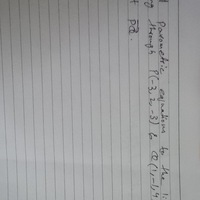 parametric equations to the
through P(-3,2,-3) to Q(1,-1,4
PQ.